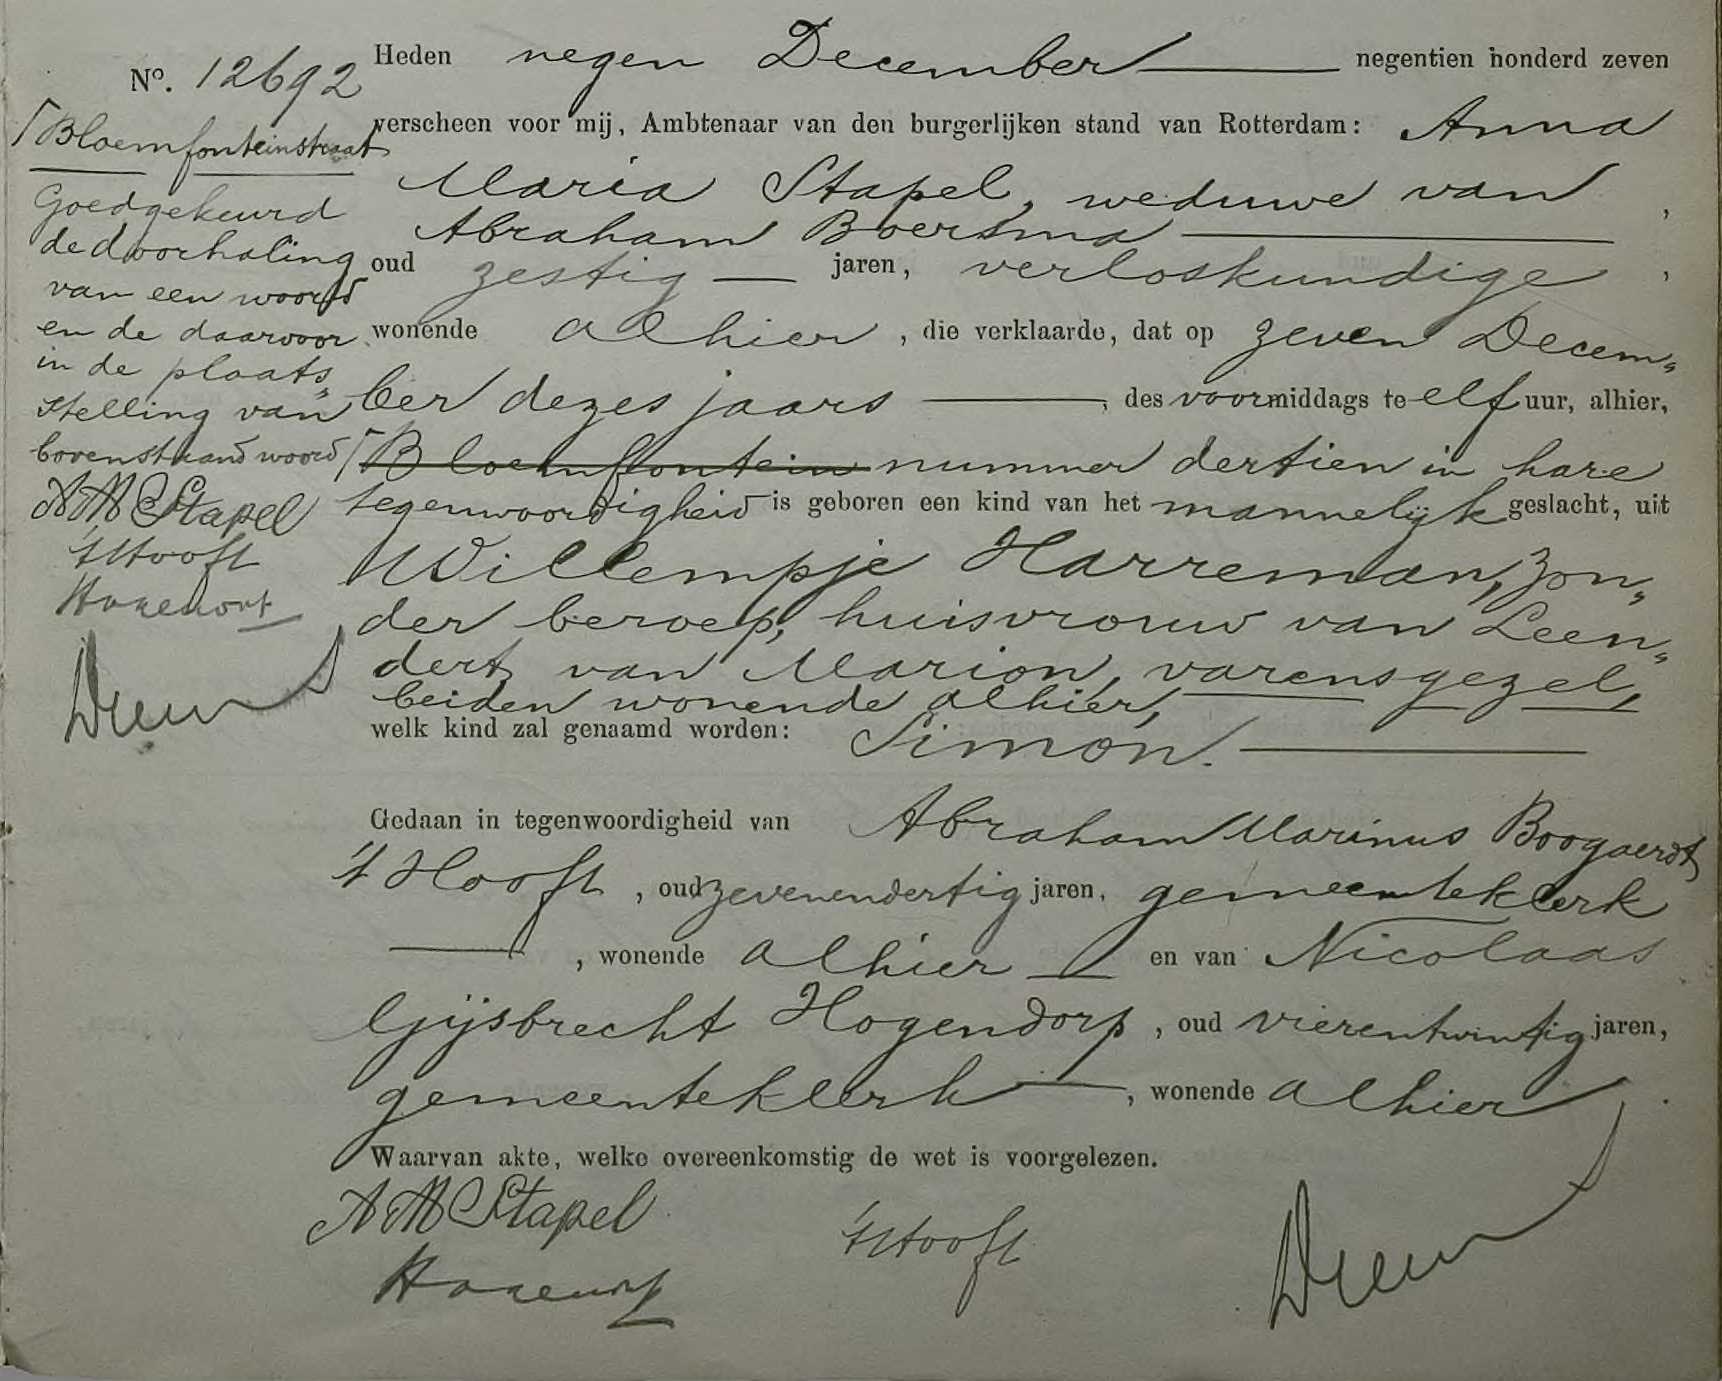 Nº. 12692
⌈Bloemfonteinstraat
Goedgekeurd
de doorhaling
van een woord
en de daarvoor
in de plaats„
stelling van
bovenstaand woord
A M Stapel
't Hooft
Heden negen December negentien honderd zeven
verscheen voor mij, Ambtenaar van den burgerlijken stand van Rotterdam: Anna
Maria Stapel, weduwe van
Abraham Boersma,
oud zestig jaren, verloskundige,
wonende alhier, die verklaarde, dat op zeven Decem„
ber dezes jaars, des voormiddags te elf uur, alhier,
⌈Bloemfontein nummer dertien in hare
tegenwoordigheid is geboren een kind van het mannelijk geslacht, uit
Willempje Harreman, zon„
der beroep, huisvrouw van Leen„
dert van Marion, varensgezel,
beiden wonende alhier,
welk kind zal genaamd worden: Simon.
Gedaan in tegenwoordigheid van Abraham Marinus Boogaerdt
't Hooft, oud zevenendertig jaren, gemeenteklerk
, wonende alhier en van Nicolaas
Gijsbrecht Hogendorp, oud vierentwintig jaren,
gemeenteklerk, wonende alhier.
Waarvan akte, welke overeenkomstig de wet is voorgelezen.
A M Stapel
't Hooft